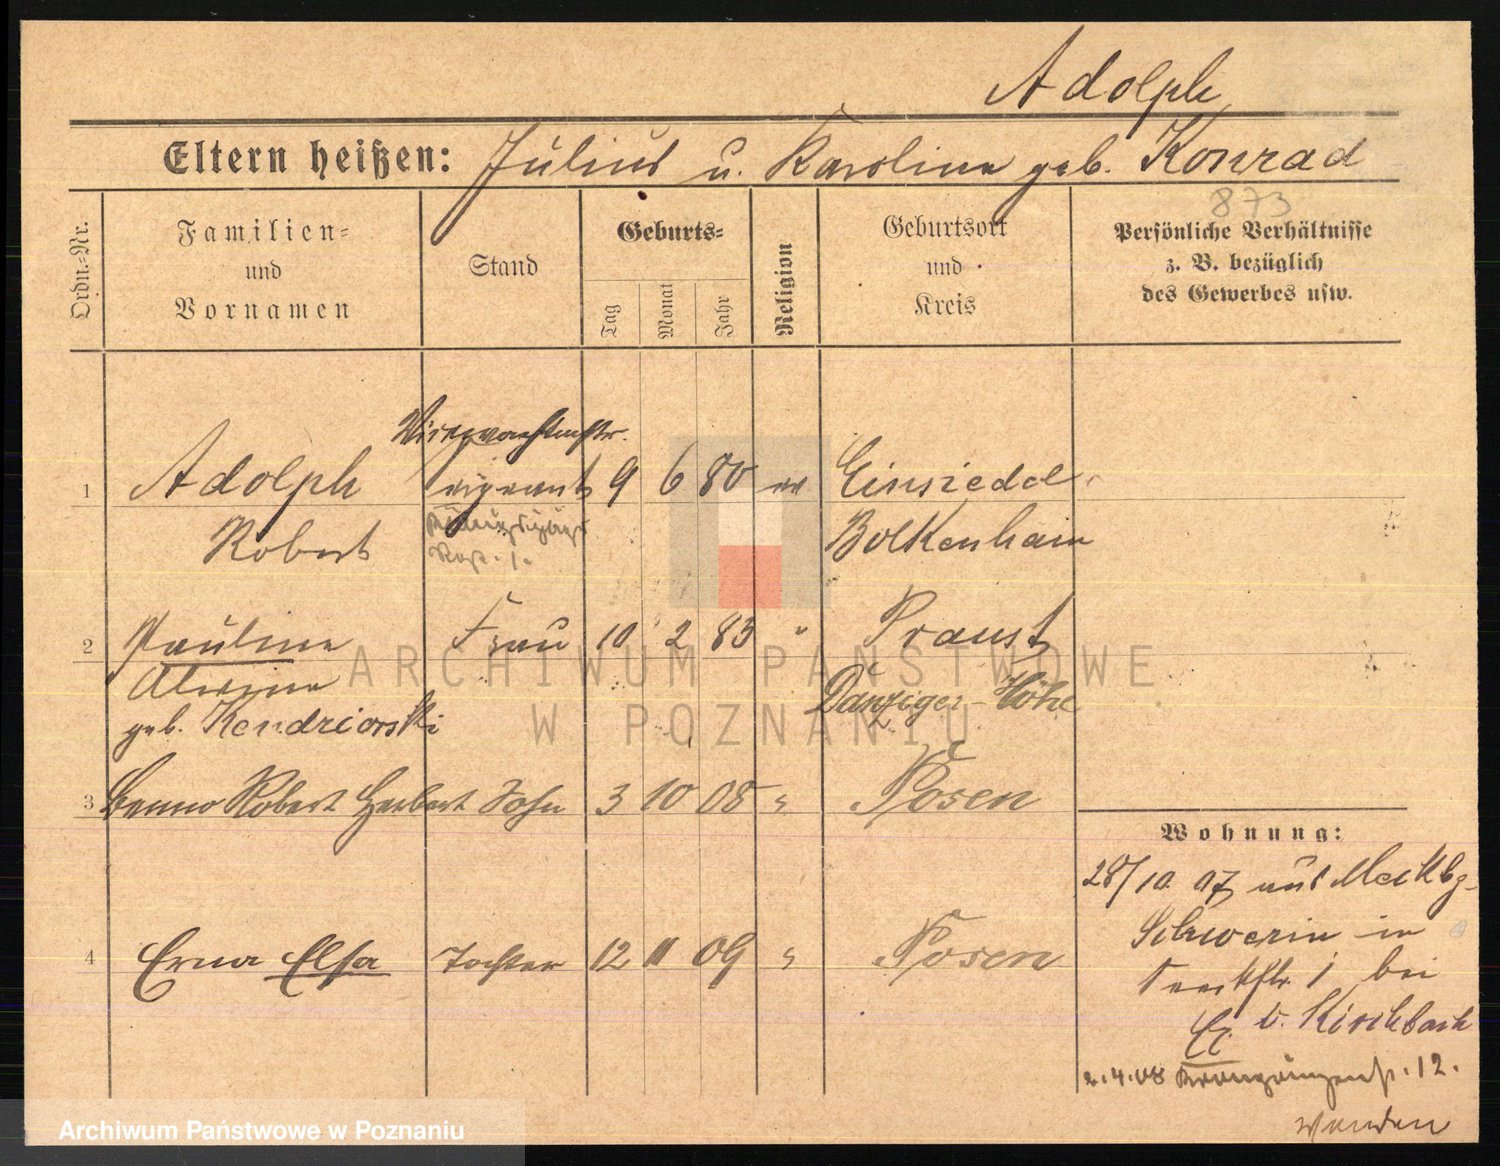 Adolph
Eltern heißen: Julius u. Karoline geb. Konrad
873
Ordn.-Nr.
Familien-
und
Vornamen
Stand
Geburts-
Tag
Monat
Jahr
Religion
Geburtsort
und
Kreis
Persönliche Verhältnisse
z. B. bezüglich
des Gewerbes usw.
Vizewachtmstr.
1 Adolph Sergeant 9 6 80 ev Einsiedel
Robert Bolkenhain
2 Pauline Frau 10 2 83 " Praust
Alwine Danziger-Höhe
geb. Kendziorski
3 Benno Robert Herbert Sohn 3 10 08 " Posen
Wohnung:
28/10 07 aus Mecklbg-
Schwerin in
1 bei
Ex. v. Kirchbach
4 Erna Elsa Tochter 12 11 09 " Posen
2.4.08 Kronprinzenst. 12.
Wenden
ARCHIWUM PAŃSTWOWE
W POZNANIU
Archiwum Państwowe w Poznaniu